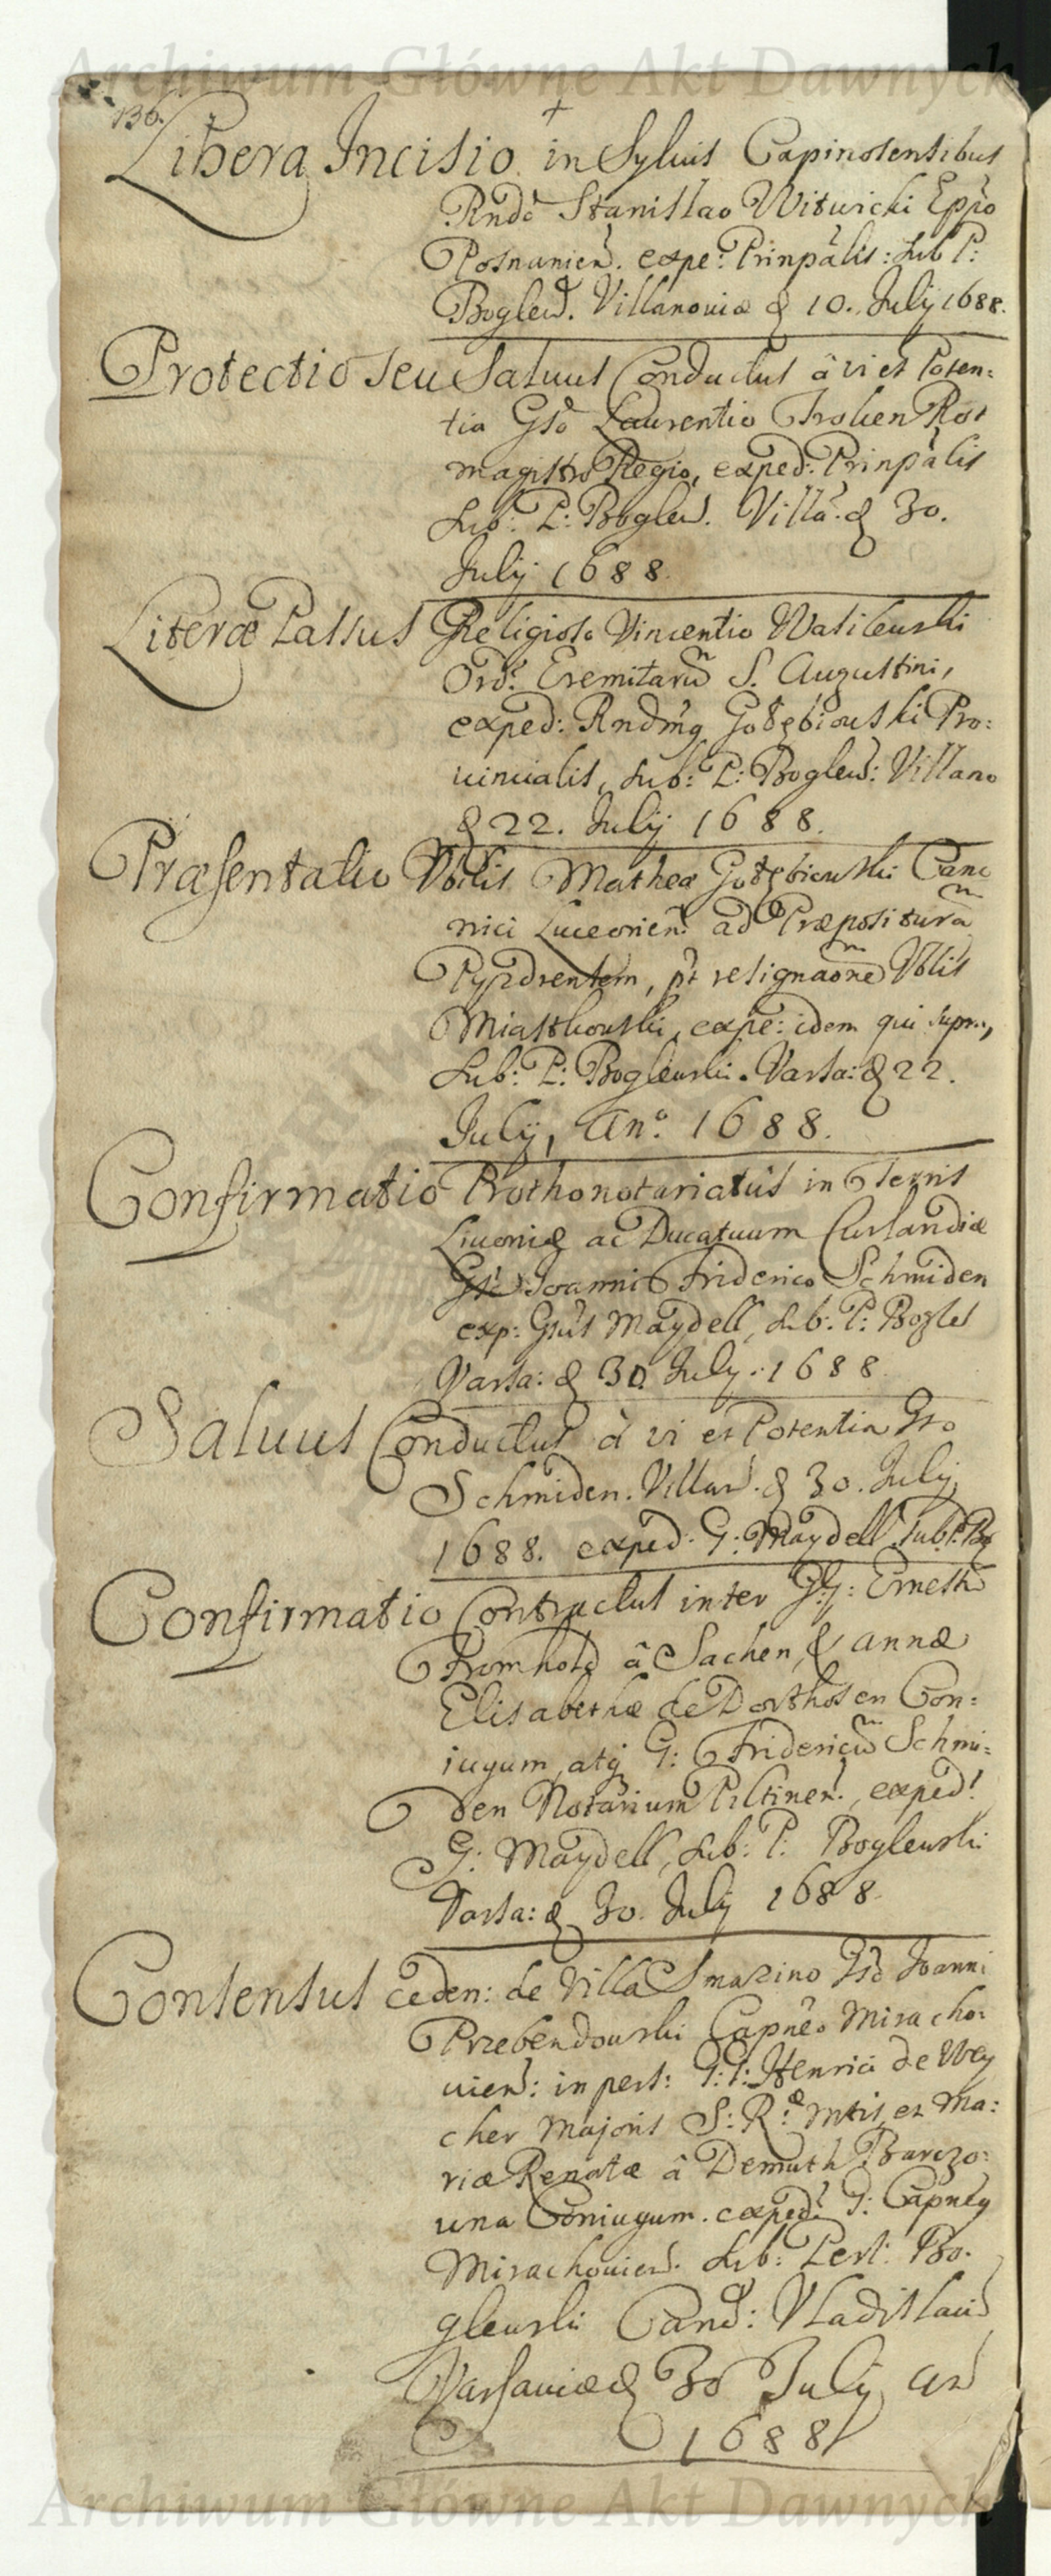 Archiwum Główne Akt Dawnych
136.
Libera Incisio in Sylvis Capinosensibus
Rndo Stanislao Witwicki Eppo
Posnanien. expe: Prinpalis: sub P:
Boglew. Villanoviæ d 10. July 1688.
Protectio seu Salvus Conductus â vi et Poten=
tia Gso Laurentio Frolien Rot
magistro Regio, exped: Prinpalis
Sub: P: Boglew. Villa: d 30.
July 1688.
Literæ Passus Religioso Vincentio Wasilewski
Ord: Eremitarum S. Augustini,
exped: Rndmg Gołębiowski Pro:
vincialis, sub: P: Boglew: Villano
d 22. July 1688.
Præsentatio Vblis Mathea Gołębiowski Cano
nici Luceorien: ad Præposituram
Pyzdrensem, pt resignaonem Vblis
Miastkowski, expe: idem qui supra,
Sub: P: Boglewski. Varsa: d 22.
July, Ano. 1688.
Confirmatio Prothonotariatus in Terris
Livoniæ ac Ducatuum Curlandiæ
Gso Joanni Friderico Schmiden
exp: Gsus Maydell, sub: P: Bogles
Varsa: d 30 July. 1688
Salvus Conductus â vi et Potentia Gso
Schmiden. Villan. d 30. July
1688. exped: G: Maydell. sub: P: Bg
Confirmatio Contractus inter G:G: Ernesth
Fromhold â Sachen, & annæ
Elisabethæ de Dorthosen Con:
iugum, atq G: Fridericum Schmi=
den Notarium Piltinen., exped:
G: Maydell, sub: P: Boglewski
Varsa: d 30. July 1688.
Consensus ceden: de Villa Smazino Gso Joanni
Przebendowski Capneo Miracho:
vien: in pers: G:G: Henrici de Wey
cher Majoris S: Ræ: Mtis, et Ma:
riæ Renatæ â Demuth Barczo:
una Coniugum. exped: G: Capneg
Mirachovien. Sub: Pers: Bo.
glewski Cand: Vladislaw
Varsaviæ d 30 July an
1688
Archiwum Główne Akt Dawnych